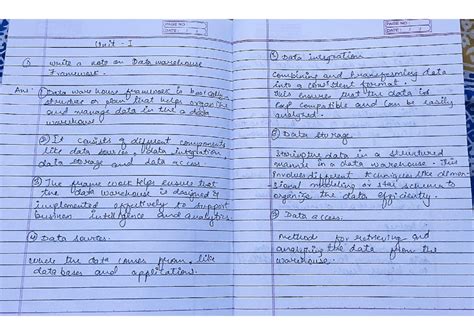 PAGE NO.
DATE:
Unit - I
① write a note on Data warehouse
Framework.
Ans: ① Data ware house framework is basically
structure or plan that helps organize
and manage data in the a data
warehouse
② It consists of different components
like data source, data integration,
data storage and data access.
③ The frame work helps ensure that
the data warehouse is designed &
implemented effectively to support
business intelligence and analytics.
④ Data sources.
Where the data comes from, like
data bases and application.
PAGE NO.
DATE:
Data integration
Combining and transforming data
into a consistent format.
This ensure that the data is
compatible and can be easily
analyzed.
Data storage.
Storing the data in a structured
manner in a data warehouse. This
involves different techniques like dimen-
sional modeling or star schema to
organize the data efficiently.
Data access.
method for retrieving and
analyzing the data from the
warehouse.